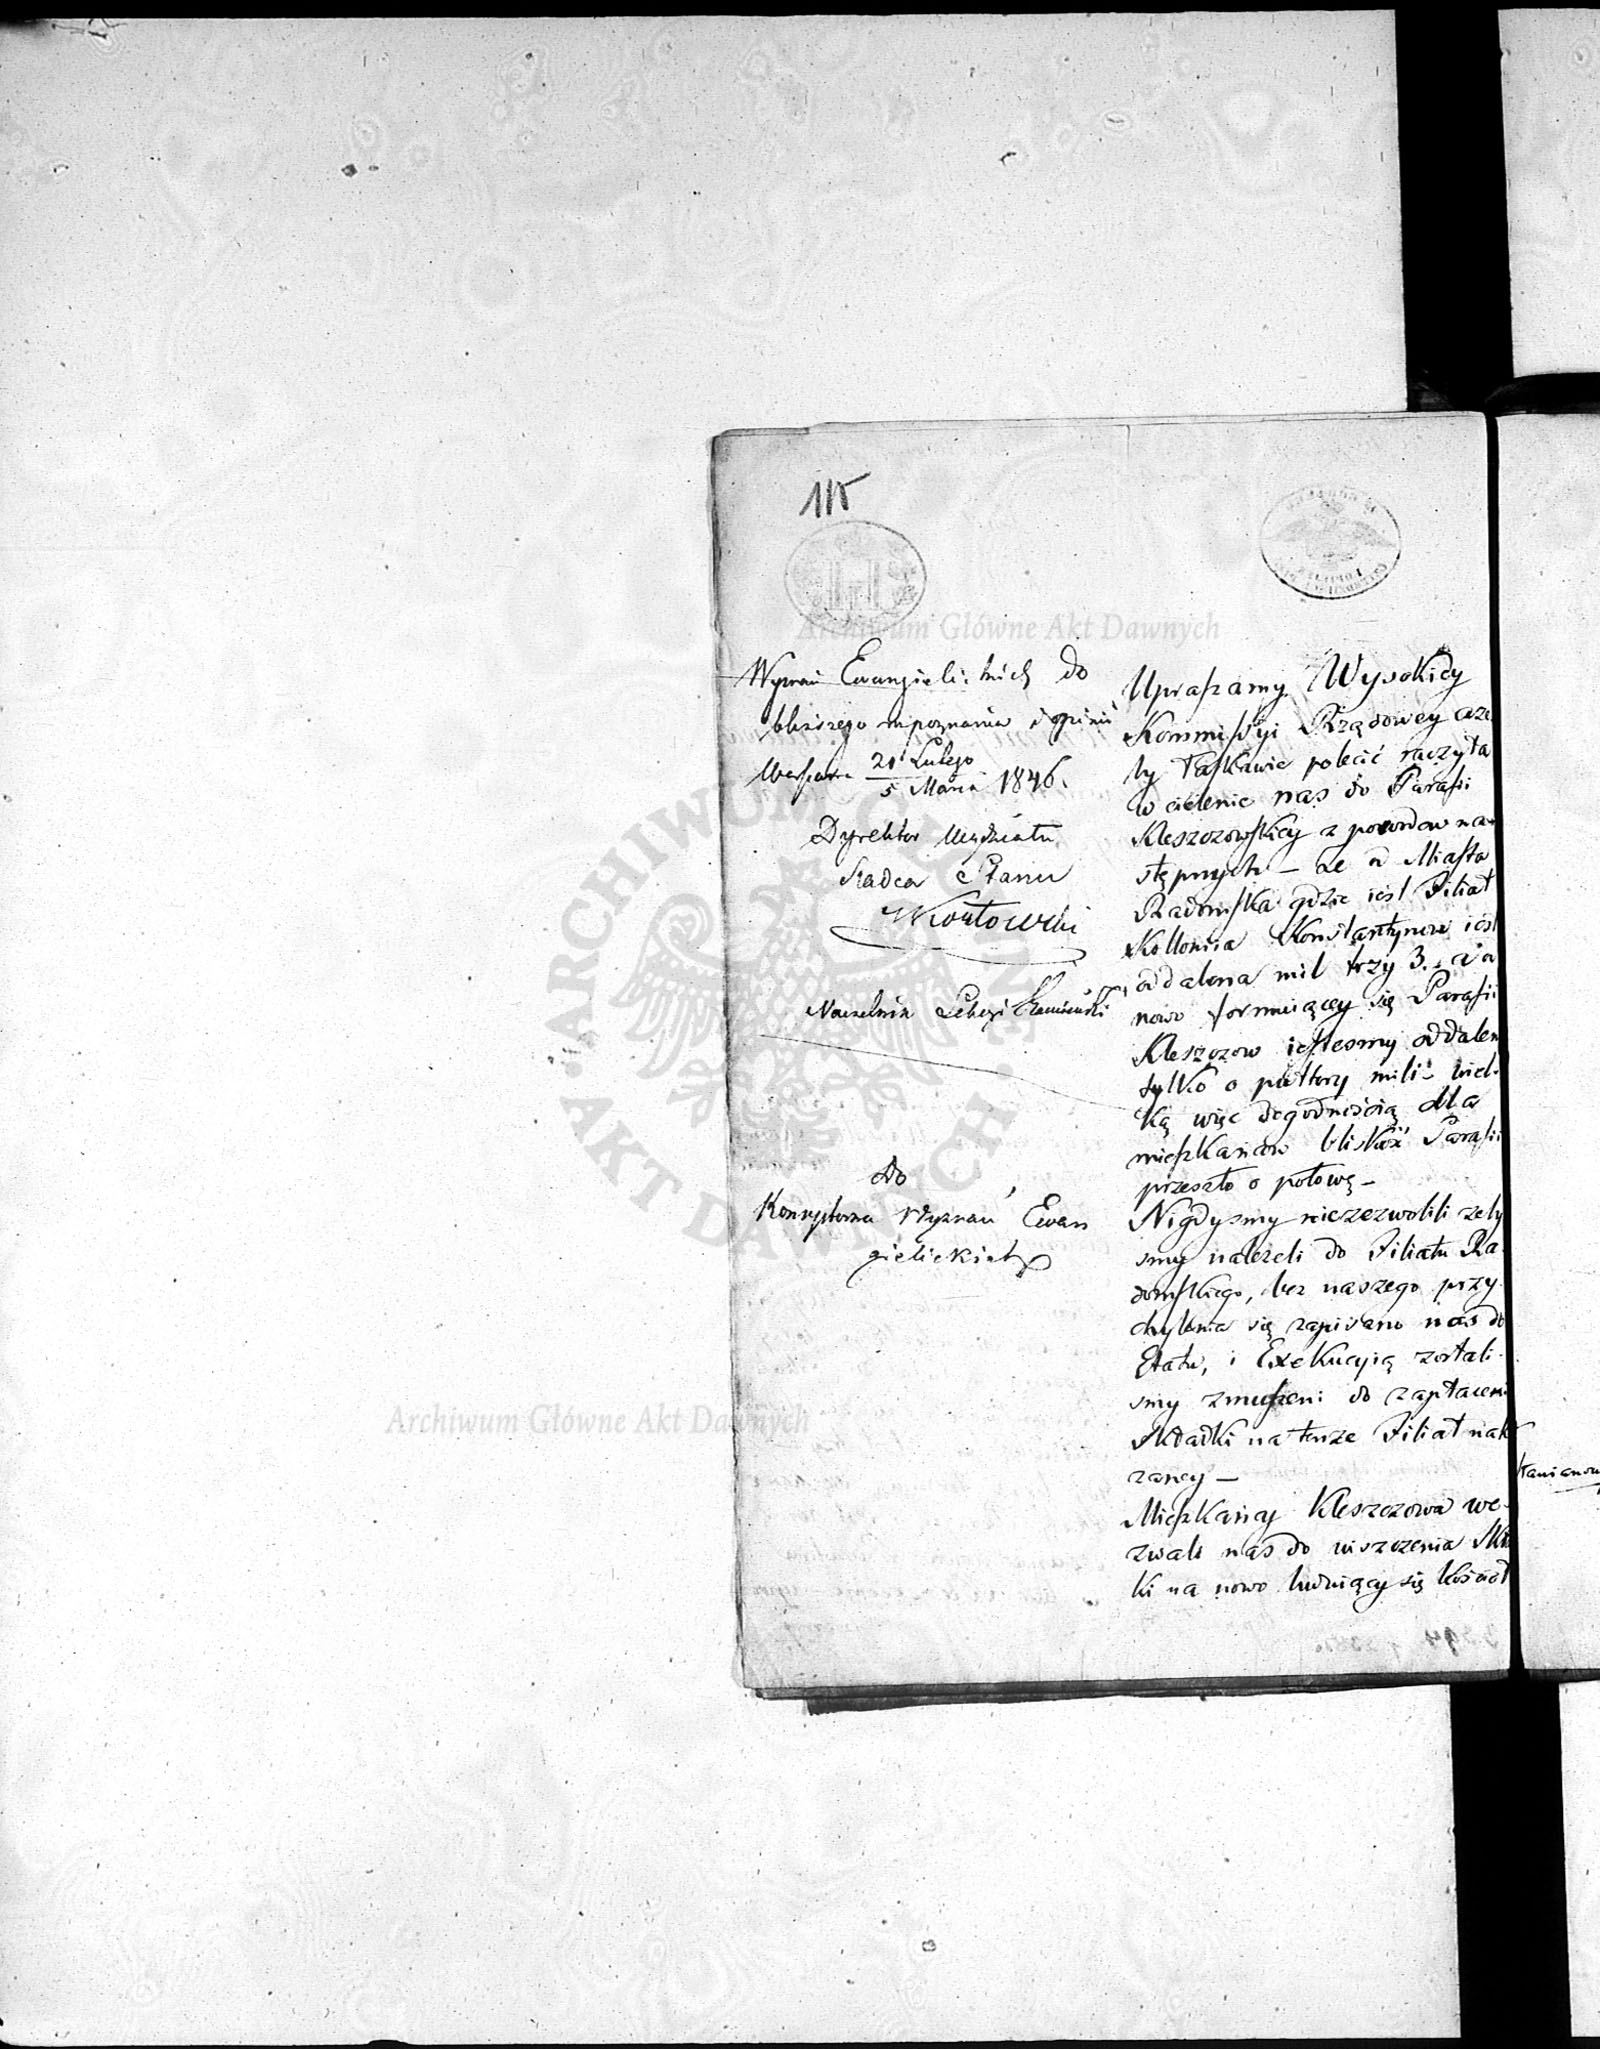 115
Wyznań Ewangielickich do
bliższego rozpoznania i opinii
Warszawa 21 Lutego
5 Marca 1846.
Dyrektor Wydziału
Radca Stanu
Kozłowski
Naczelnik Sekcyi
Do
Konsystorza Wyznań Ewan
gielickich
Upraszamy Wysokiey
Kommissyi Rządowey aże
by łaskawie polecić raczyła
wcielenie nas do Parafii
Kleszczowskiey z powodow na
stępnych – że od Miasta
Radomska gdzie iest Filiał
Kollonia Konstantynow iest
oddalona mil trzy 3. a od
nowo formuiącey się Parafii
Kleszczow iestesmy oddaleni
tylko o pułtory mili wiel-
ką więc dogodnością dla
mieszkańcow bliskość Parafii
przeszło o połowę –
Nigdysmy niezezwolili żeby
smy należeli do Filiału Ra-
domskiego, bez naszego przy
chylenia się zapisano nas do
Etatu, i Exekucyią zostali-
smy zmuszeni do zapłaceni
składki na tenże Filiał naka
zaney –
Mieszkańcy Kleszczowa we-
zwali nas do uiszczenia Skł
ki na nowo buduiący się Kościoł
Archiwum Główne Akt Dawnych
Archiwum Główne Akt Dawnych
ARCHIWUM GŁÓWNE · AKT DAWNYCH ·